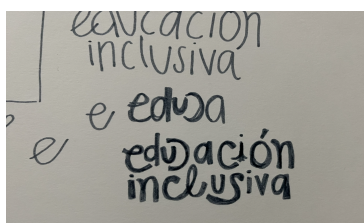 educación
inclusiva
e educa
e
educación
inclusiva